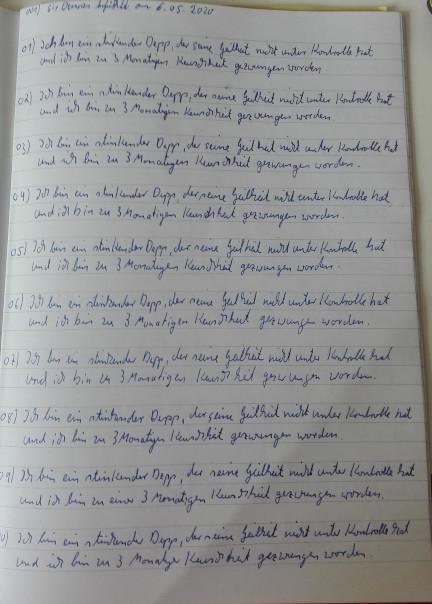 Sir Dennis befiehlt am 6.05.2020
01) Ich bin ein stinkender Depp, der seine Geilheit nicht unter Kontrolle hat
und ich bin zu 3 Monatigen Keuschheit gezwungen worden.
02) Ich bin ein stinkender Depp, der seine Geilheit nicht unter Kontrolle hat
und ich bin zu 3 Monatigen Keuschheit gezwungen worden.
03) Ich bin ein stinkender Depp, der seine Geilheit nicht unter Kontrolle hat
und ich bin zu 3 Monatigen Keuschheit gezwungen worden.
04) Ich bin ein stinkender Depp, der seine Geilheit nicht unter Kontrolle hat
und ich bin zu 3 Monatigen Keuschheit gezwungen worden.
05) Ich bin ein stinkender Depp, der seine Geilheit nicht unter Kontrolle hat
und ich bin zu 3 Monatigen Keuschheit gezwungen worden.
06) Ich bin ein stinkender Depp, der seine Geilheit nicht unter Kontrolle hat
und ich bin zu 3 Monatigen Keuschheit gezwungen worden.
07) Ich bin ein stinkender Depp, der seine Geilheit nicht unter Kontrolle hat
und ich bin zu 3 Monatigen Keuschheit gezwungen worden.
08) Ich bin ein stinkender Depp, der seine Geilheit nicht unter Kontrolle hat
und ich bin zu 3 Monatigen Keuschheit gezwungen worden.
09) Ich bin ein stinkender Depp, der seine Geilheit nicht unter Kontrolle hat
und ich bin zu einer 3 Monatigen Keuschheit gezwungen worden.
Ich bin ein stinkender Depp, der seine Geilheit nicht unter Kontrolle hat
und ich bin zu 3 Monatiger Keuschheit gezwungen worden.